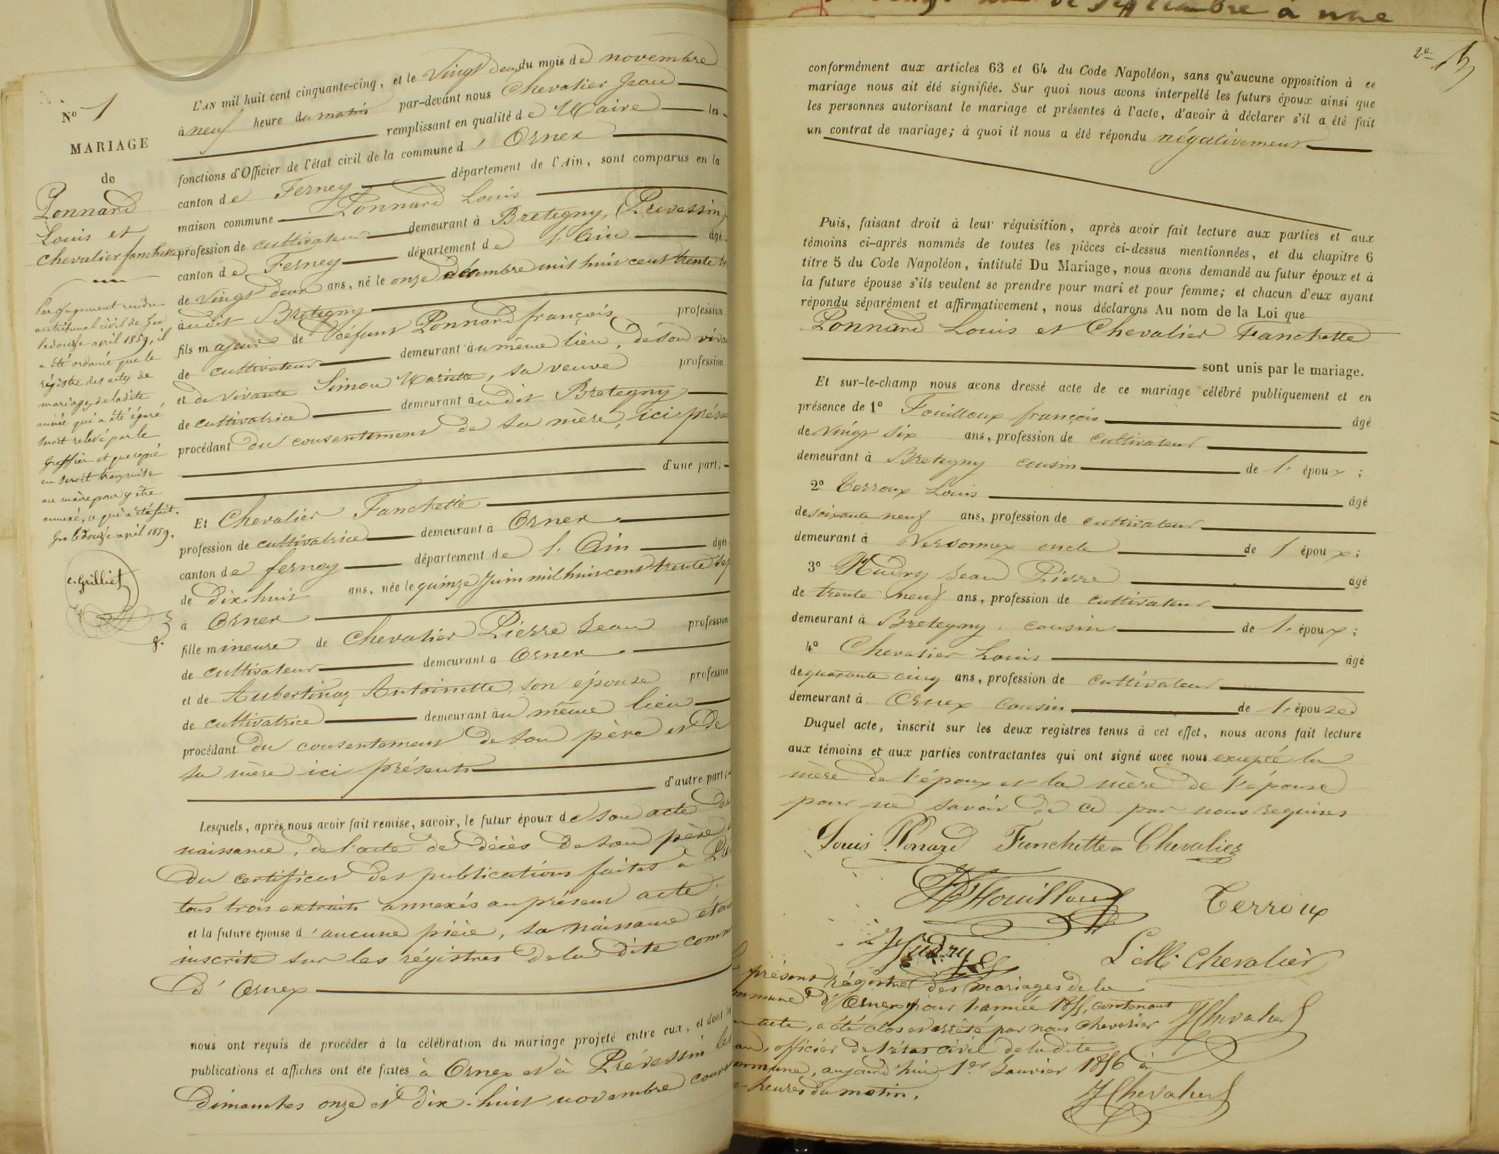 N° 1
MARIAGE
de
Ponnard
Louis et
Chevalier fanchette
Par jugement rendu
au tribunal civil de Gex
le douze avril 1859, il
a été ordonné que le
registre des actes de
mariage de la dite
année qui a été égaré
serait relevé par le
Greffier et que copie
en serait transmise
au maire pour y être
annexé, ce qui a été fait.
Gex le douze avril 1859.
C. Grilliet
L'AN mil huit cent cinquante-cinq, et le Vingt deux du mois de novembre
à neuf heure du matin par-devant nous Chevalier Jean
remplissant en qualité de Maire les
fonctions d'Officier de l'état civil de la commune d' Ornex
canton de Ferney département de l'Ain, sont comparus en la
maison commune Ponnard Louis
profession de cultivateur demeurant à Bretigny, (Prevessin)
canton de Ferney département de l'Ain âgé
de vingt deux ans, né le onze décembre mil huit cent trente
audit Bretigny
fils majeur de Défunt Ponnard françois, profession
de cultivateur demeurant au même lieu, de son vivant
et de vivante Simon Mariette, sa veuve profession
de cultivatrice demeurant audit Bretegny
procédant du consentement de sa mère, ici présente
d'une part;
Et Chevalier Fanchette
profession de cultivatrice demeurant à Ornex
canton de ferney département de l'Ain âgée
de dix-huit ans, née le quinze Juin mil huit cent trente sept
à Ornex
fille mineure de Chevalier Pierre Jean profession
de cultivateur demeurant à Ornex
et de Aubertinaz Antoinette son épouse profession
de cultivatrice demeurant au même lieu
procédant du consentement de son père et de
sa mère ici présents
d'autre part;
Lesquels, après nous avoir fait remise, savoir, le futur époux de son acte de
naissance, de l'acte de décès de son père
du certificat des publications faites à
tous trois extraits annexés au présent acte.
et la future épouse d'aucune pièce, sa naissance étant
inscrite sur les régistres de la dite commune
d'Ornex
nous ont requis de procéder à la célébration du mariage projeté entre eux, et dont les
publications et affiches ont été faites à Ornex et à Prévessin les
dimanches onze et dix-huit novembre courant
de septembre à une
2e
conformément aux articles 63 et 64 du Code Napoléon, sans qu'aucune opposition à ce
mariage nous ait été signifiée. Sur quoi nous avons interpellé les futurs époux ainsi que
les personnes autorisant le mariage et présentes à l'acte, d'avoir à déclarer s'il a été fait
un contrat de mariage; à quoi il nous a été répondu négativement
Puis, faisant droit à leur réquisition, après avoir fait lecture aux parties et aux
témoins ci-après nommés de toutes les pièces ci-dessus mentionnées, et du chapitre 6
titre 5 du Code Napoléon, intitulé Du Mariage, nous avons demandé au futur époux et à
la future épouse s'ils veulent se prendre pour mari et pour femme; et chacun d'eux ayant
répondu séparément et affirmativement, nous déclarons Au nom de la Loi que
Ponnard Louis et Chevalier Fanchette
sont unis par le mariage.
Et sur-le-champ nous avons dressé acte de ce mariage célébré publiquement et en
présence de 1° Fouilloux françois âgé
de vingt six ans, profession de cultivateur
demeurant à Bretegny cousin de l'époux;
2° Terroux Louis âgé
de soixante neuf ans, profession de cultivateur
demeurant à Versonnex oncle de l'époux;
3° Kudry Jean Pierre âgé
de trente neuf ans, profession de cultivateur
demeurant à Bretegny. cousin de l'époux;
4° Chevalier Louis âgé
de quarante cinq ans, profession de cultivateur
demeurant à Ornex cousin de l'épouse
Duquel acte, inscrit sur les deux registres tenus à cet effet, nous avons fait lecture
aux témoins et aux parties contractantes qui ont signé avec nous excepté la
mère de l'époux et la mère de l'épouse
pour ne savoir de ce par nous requises
Louis Ponard Fanchette Chevalier
Fouilloux Terroux
L. M. Chevalier
présent régistre des mariages de la
commune d'Ornex pour l'année 1855, contenant
acte, a été clos et arrêté par nous Chevalier J Chevalier
officier de l'état civil de la dite
commune, aujourd'hui 1er Janvier 1856 à
heures du matin. J Chevalier